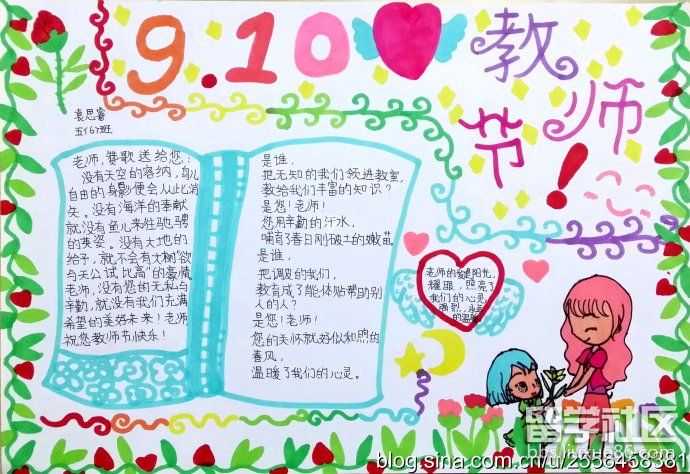 9.10
教师
节！
袁思睿
五(6)班
老师，赞歌送给您：
没有天空的容纳，鸟儿
自由的身影便会从此消
失。没有海洋的奉献
就没有鱼儿来往驰骋
的英姿。没有大地的
给予，就不会有大树“欲
与天公试比高”的豪情。
老师，没有您的无私与
辛勤，就没有我们充满
希望的美好未来！老师
祝您教师节快乐！
是谁，
把无知的我们领进教室，
教给我们丰富的知识？
是您！老师！
您用辛勤的汗水，
哺育了春日刚破土的嫩苗。
是谁，
把调皮的我们，
教育成了能体贴帮助别
人的人？
是您！老师！
您的关怀就好似和煦的
春风，
温暖了我们的心灵。
老师的爱是阳光，
耀眼，照亮了
我们的心灵。
的温暖
留学社区
bbs.liuxue86.com
blog.sina.com.cn/u/2556458381